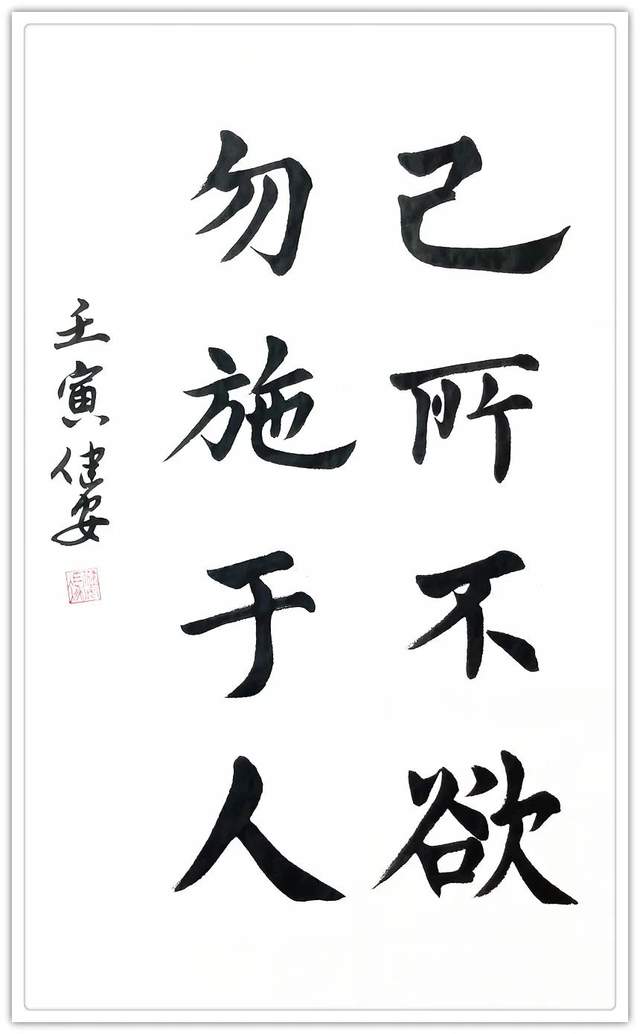 己所不欲
勿施于人
壬寅健安